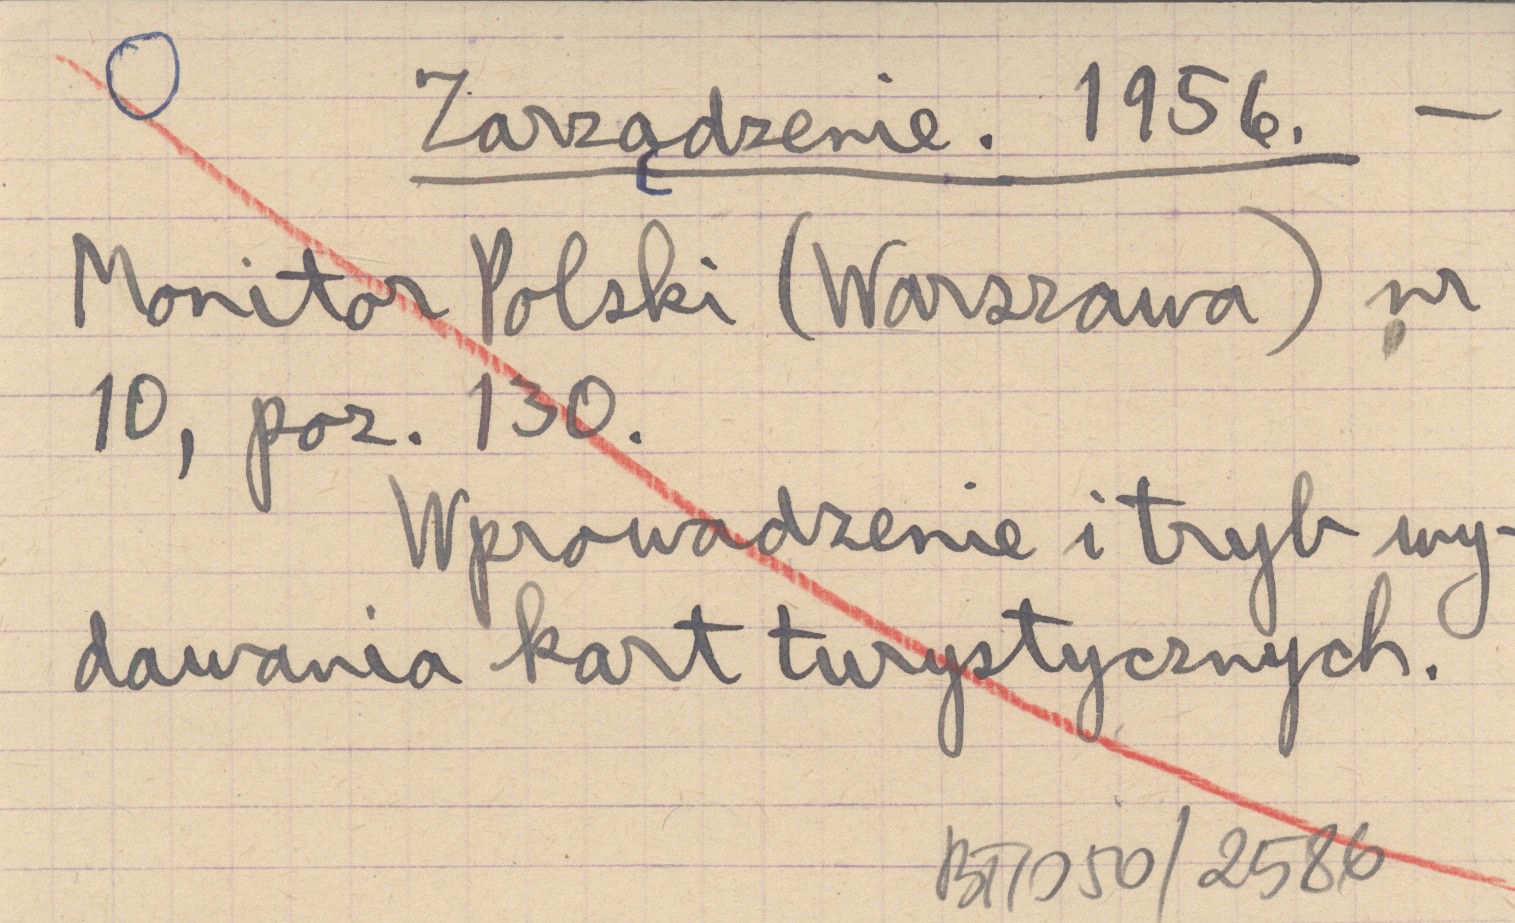 Zarządzenie. 1956. —
Monitor Polski (Warszawa) nr
10, poz. 130.
Wprowadzenie i tryb wy-
dawania kart turystycznych.
50/2586